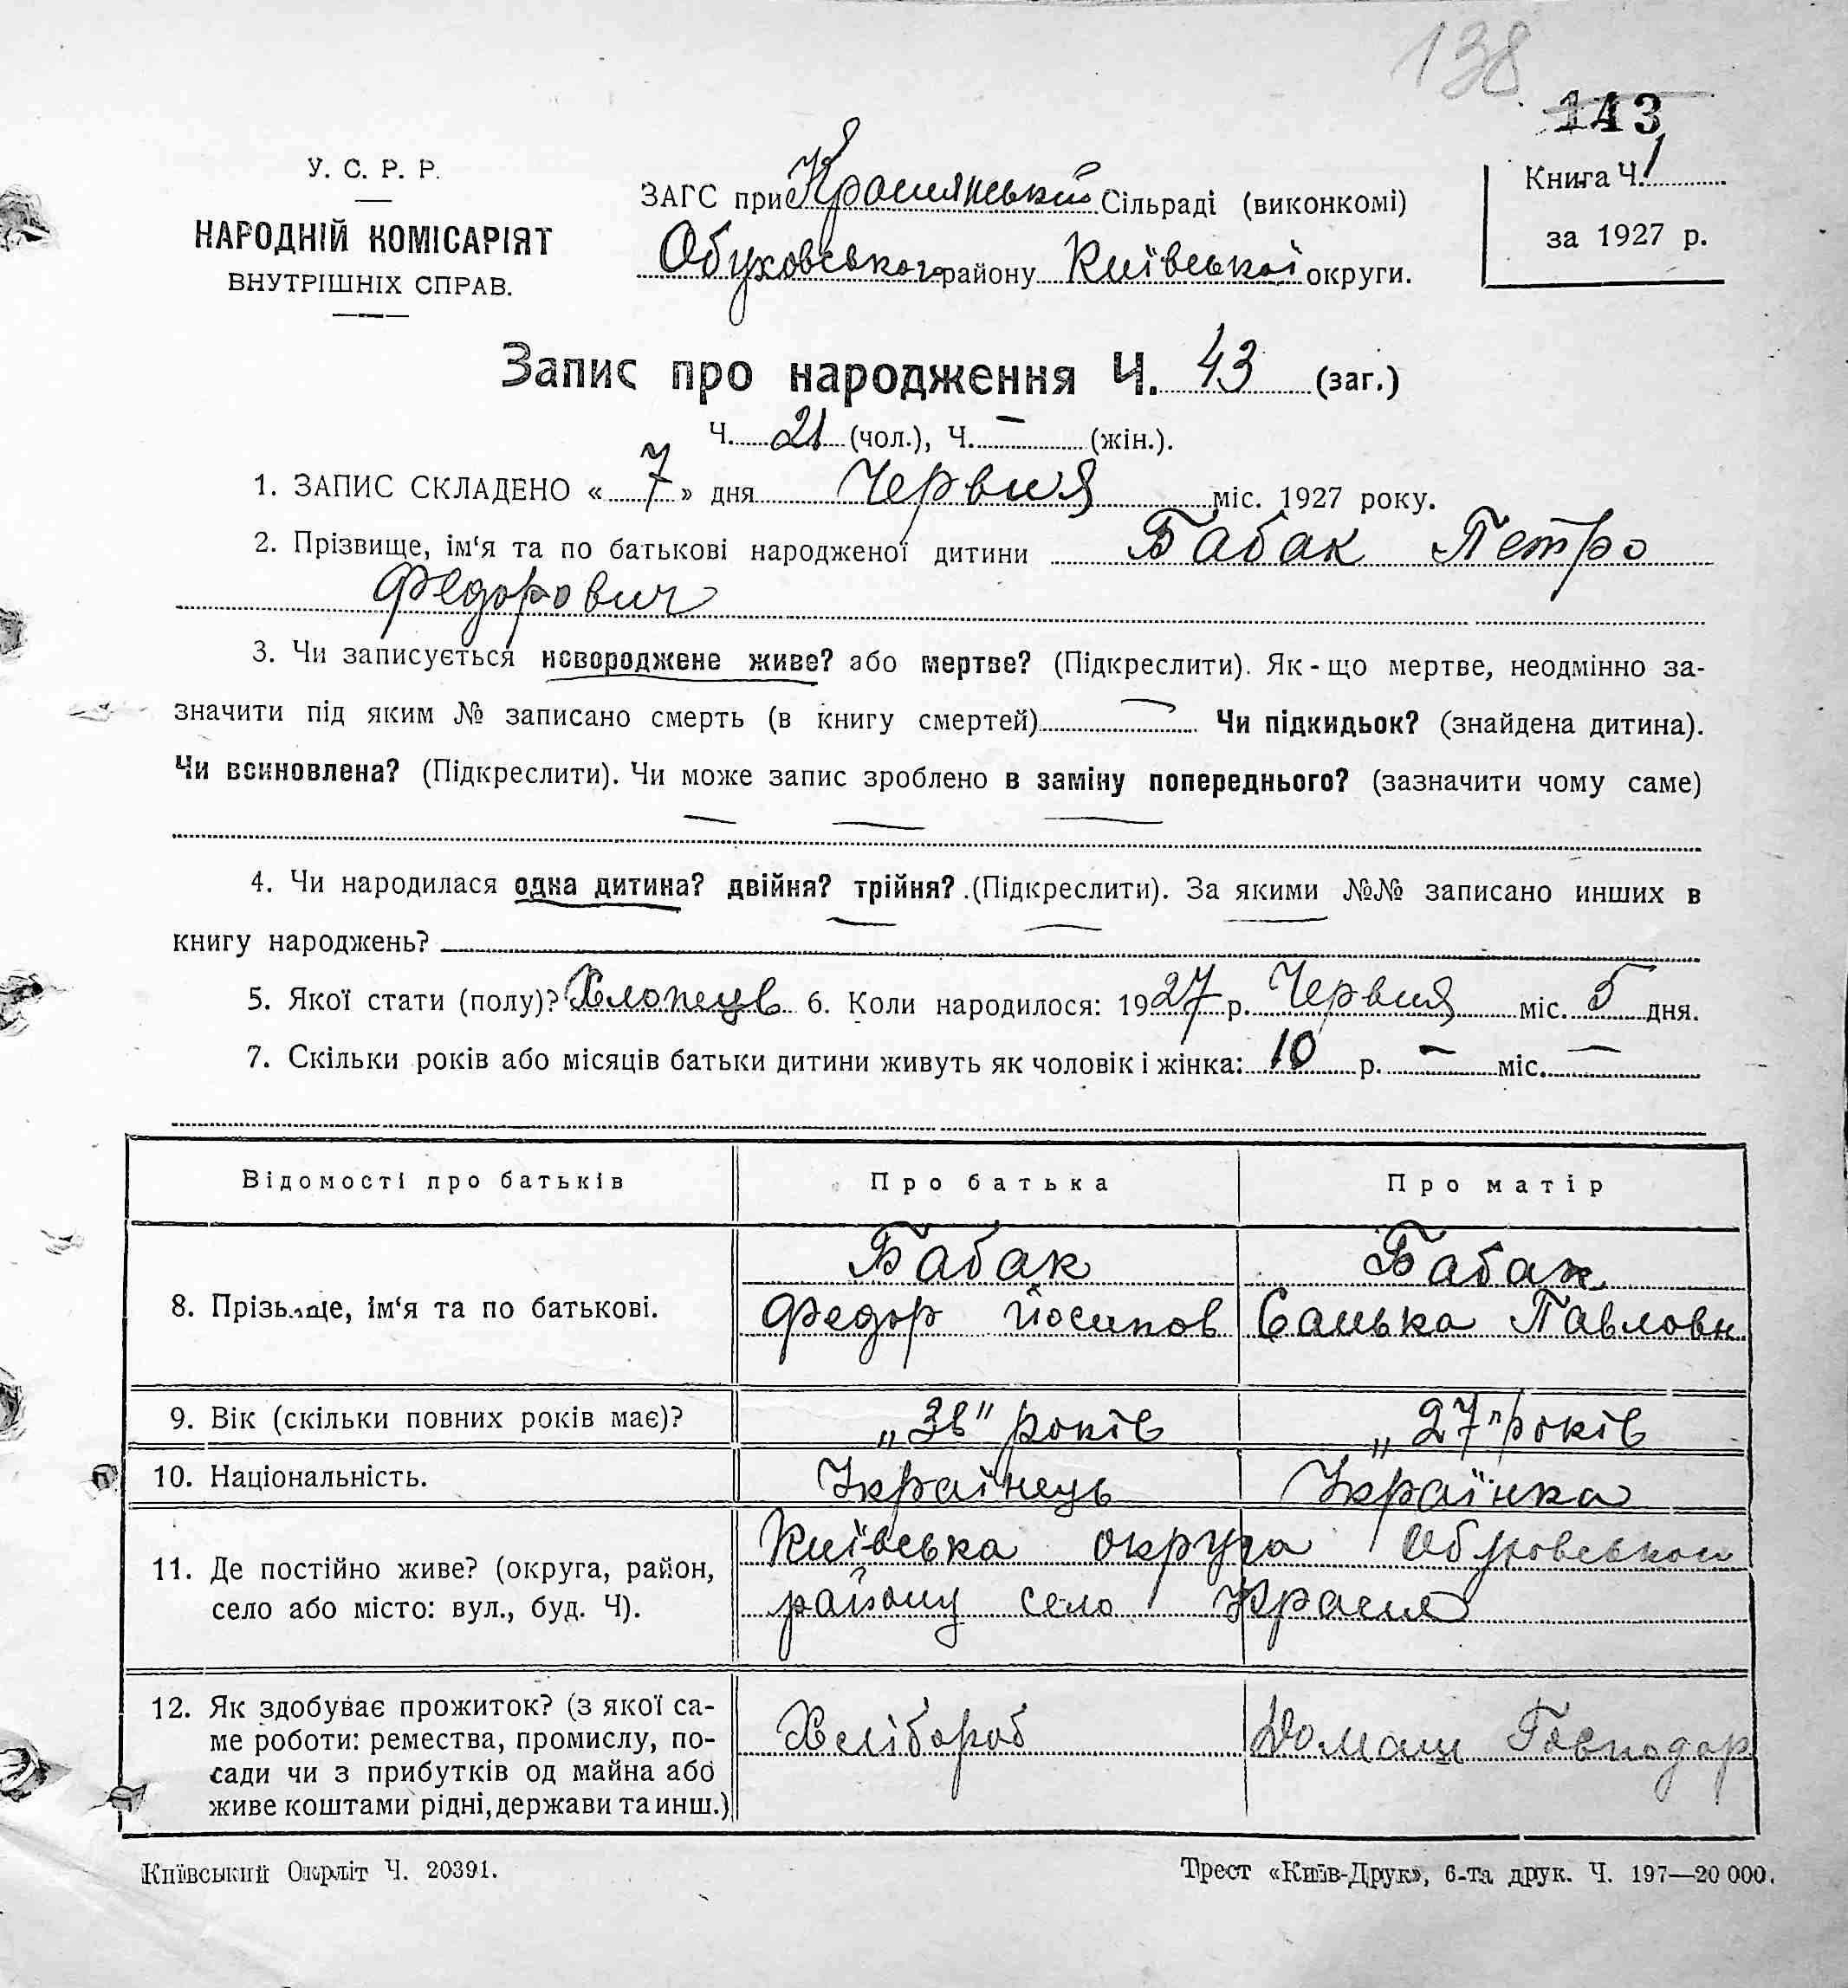 138
143
У. С. Р. Р.
НАРОДНІЙ КОМІСАРІЯТ
ВНУТРІШНІХ СПРАВ.
ЗАГС при Краснянській Сільраді (виконкомі)
Обуховського району Київської округи.
Книга Ч. 1
за 1927 р.
Запис про народження Ч. 43 (заг.)
Ч. 21 (чол.), Ч. — (жін.).
1. ЗАПИС СКЛАДЕНО « 7 » дня Червня міс. 1927 року.
2. Прізвище, ім‘я та по батькові народженої дитини Бабак Петро
Федорович
3. Чи записується новороджене живе? або мертве? (Підкреслити). Як-що мертве, неодмінно за-
значити під яким № записано смерть (в книгу смертей) — Чи підкидьок? (знайдена дитина).
Чи всиновлена? (Підкреслити). Чи може запис зроблено в заміну попереднього? (зазначити чому саме)
— — —
4. Чи народилася одна дитина? двійня? трійня? (Підкреслити). За якими №№ записано инших в
книгу народжень?
5. Якої стати (полу)? Хлопець 6. Коли народилося: 1927 р. Червня міс. 5 дня.
7. Скільки років або місяців батьки дитини живуть як чоловік і жінка: 10 р. — міс. —
Відомості про батьків Про батька Про матір
8. Прізвище, ім‘я та по батькові.
Бабак Бабак
Федор Йосипов Санька Павловн
9. Вік (скільки повних років має)? „38" років „27" років
10. Національність. Українець Українка
11. Де постійно живе? (округа, район,
село або місто: вул., буд. Ч).
Київська округа Обуховського
району село Красня
12. Як здобуває прожиток? (з якої са-
ме роботи: ремества, промислу, по-
сади чи з прибутків од майна або
живе коштами рідні, держави та инш.)
Хлібороб Домаш Господар
Київський Окрліт Ч. 20391.
Трест «Київ-Друк», 6-та друк. Ч. 197—20 000.